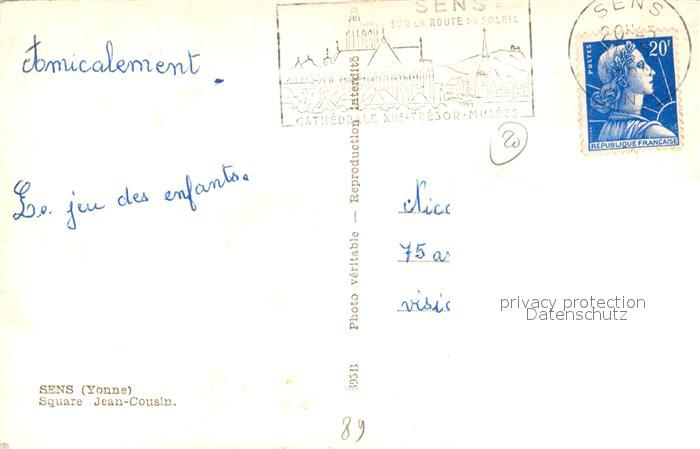 Amicalement.
Le jeu des enfants.
SENS (Yonne)
Square Jean-Cousin.
395B Photo véritable — Reproduction interdite
SENS
SUR LA ROUTE DU SOLEIL
CATHÉDRALE XIIS - TRÉSOR - MUSÉES
SENS
20H45
POSTES
20F
REPUBLIQUE FRANÇAISE
20
Nicc
75 a
visic
privacy protection
Datenschutz
89